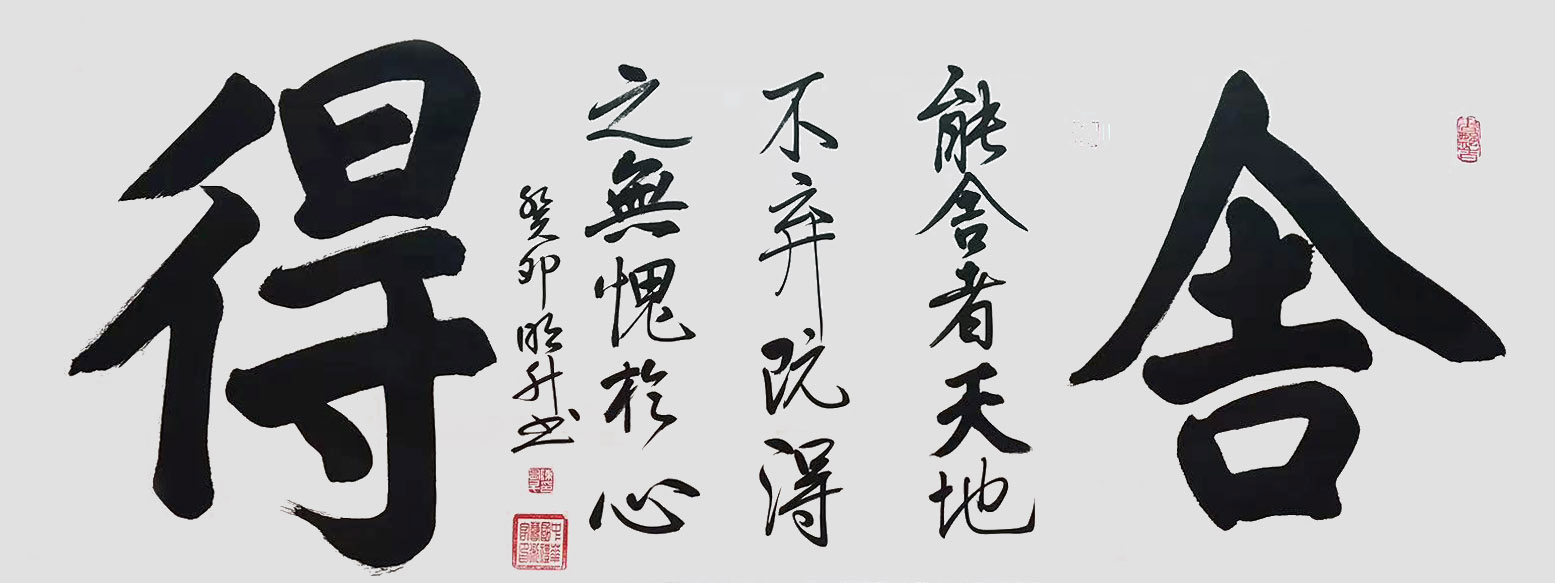 舍
能舍者天地
不弃既得
之無愧於心
癸卯明升书
得